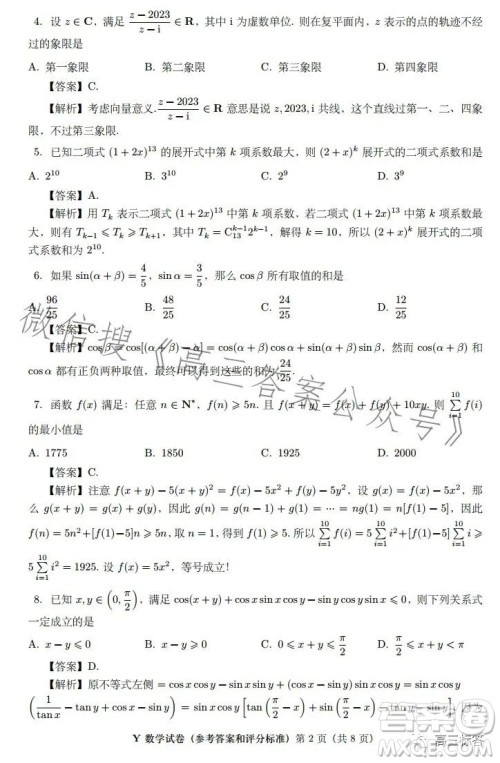 4. 设 z∈C，满足 (z−2023)/(z−i) ∈R，其中 i 为虚数单位. 则在复平面内，z 表示的点的轨迹不经
过的象限是
A. 第一象限 B. 第二象限 C. 第三象限 D. 第四象限
【答案】C.
【解析】考虑向量意义. (z−2023)/(z−i) ∈R 意思是说 z,2023,i 共线，这个直线过第一、二、四象
限，不过第三象限.
5. 已知二项式 (1+2x)^13 的展开式中第 k 项系数最大，则 (2+x)^k 展开式的二项式系数和是
A. 2^10 B. 3^10 C. 2^9 D. 3^9
【答案】A.
【解析】用 T_k 表示二项式 (1+2x)^13 中第 k 项系数，若二项式 (1+2x)^13 中第 k 项系数最
大，则有 T_{k−1}⩽T_k⩾T_{k+1}，其中 T_k=C_13^{k−1}2^{k−1}，解得 k=10，所以 (2+x)^k 展开式的二项
式系数和为 2^10.
6. 如果 sin(α+β)=4/5，sinα=3/5，那么 cosβ 所有取值的和是
A. 96/25 B. 48/25 C. 24/25 D. 12/25
【答案】C.
【解析】cosβ=cos[(α+β)−α]=cos(α+β)cosα+sin(α+β)sinβ，然而 cos(α+β) 和
cosα 都有正负两种取值，最终可以得到这些取值的和为 24/25.
7. 函数 f(x) 满足：任意 n∈N*，f(n)⩾5n. 且 f(x+y)=f(x)+f(y)+10xy. 则 ∑_{i=1}^{10} f(i)
的最小值是
A. 1775 B. 1850 C. 1925 D. 2000
【答案】C.
【解析】注意 f(x+y)−5(x+y)^2=f(x)−5x^2+f(y)−5y^2，设 g(x)=f(x)−5x^2，那
么 g(x+y)=g(x)+g(y)，因此 g(n)=g(n−1)+g(1)=⋯=ng(1)=n[f(1)−5]，因此
f(n)=5n^2+[f(1)−5]n⩾5n，取 n=1，得到 f(1)⩾5. 所以 ∑_{i=1}^{10} f(i)=5∑_{i=1}^{10} i^2+[f(1)−5]∑_{i=1}^{10} i⩾
5∑_{i=1}^{10} i^2=1925. 设 f(x)=5x^2，等号成立！
8. 已知 x,y∈(0,π/2)，满足 cos(x+y)+cosx sinx cosy−sinx cosy siny⩽0，则下列关系式
一定成立的是
A. x−y⩽0 B. x−y⩾0 C. 0⩽x+y⩽π/2 D. π/2⩽x+y<π
【答案】D.
【解析】原不等式左侧 =cosx cosy−sinx siny+(cosx−siny)sinx cosy=sinx cosy
(1/tanx−tany+cosx−siny)=[tan(π/2−x)−tany+sin(π/2−x)−siny]sinx cosy
Y 数学试卷（参考答案和评分标准）第 2 页（共 8 页）
微信搜《高三答案公众号》
高三标答